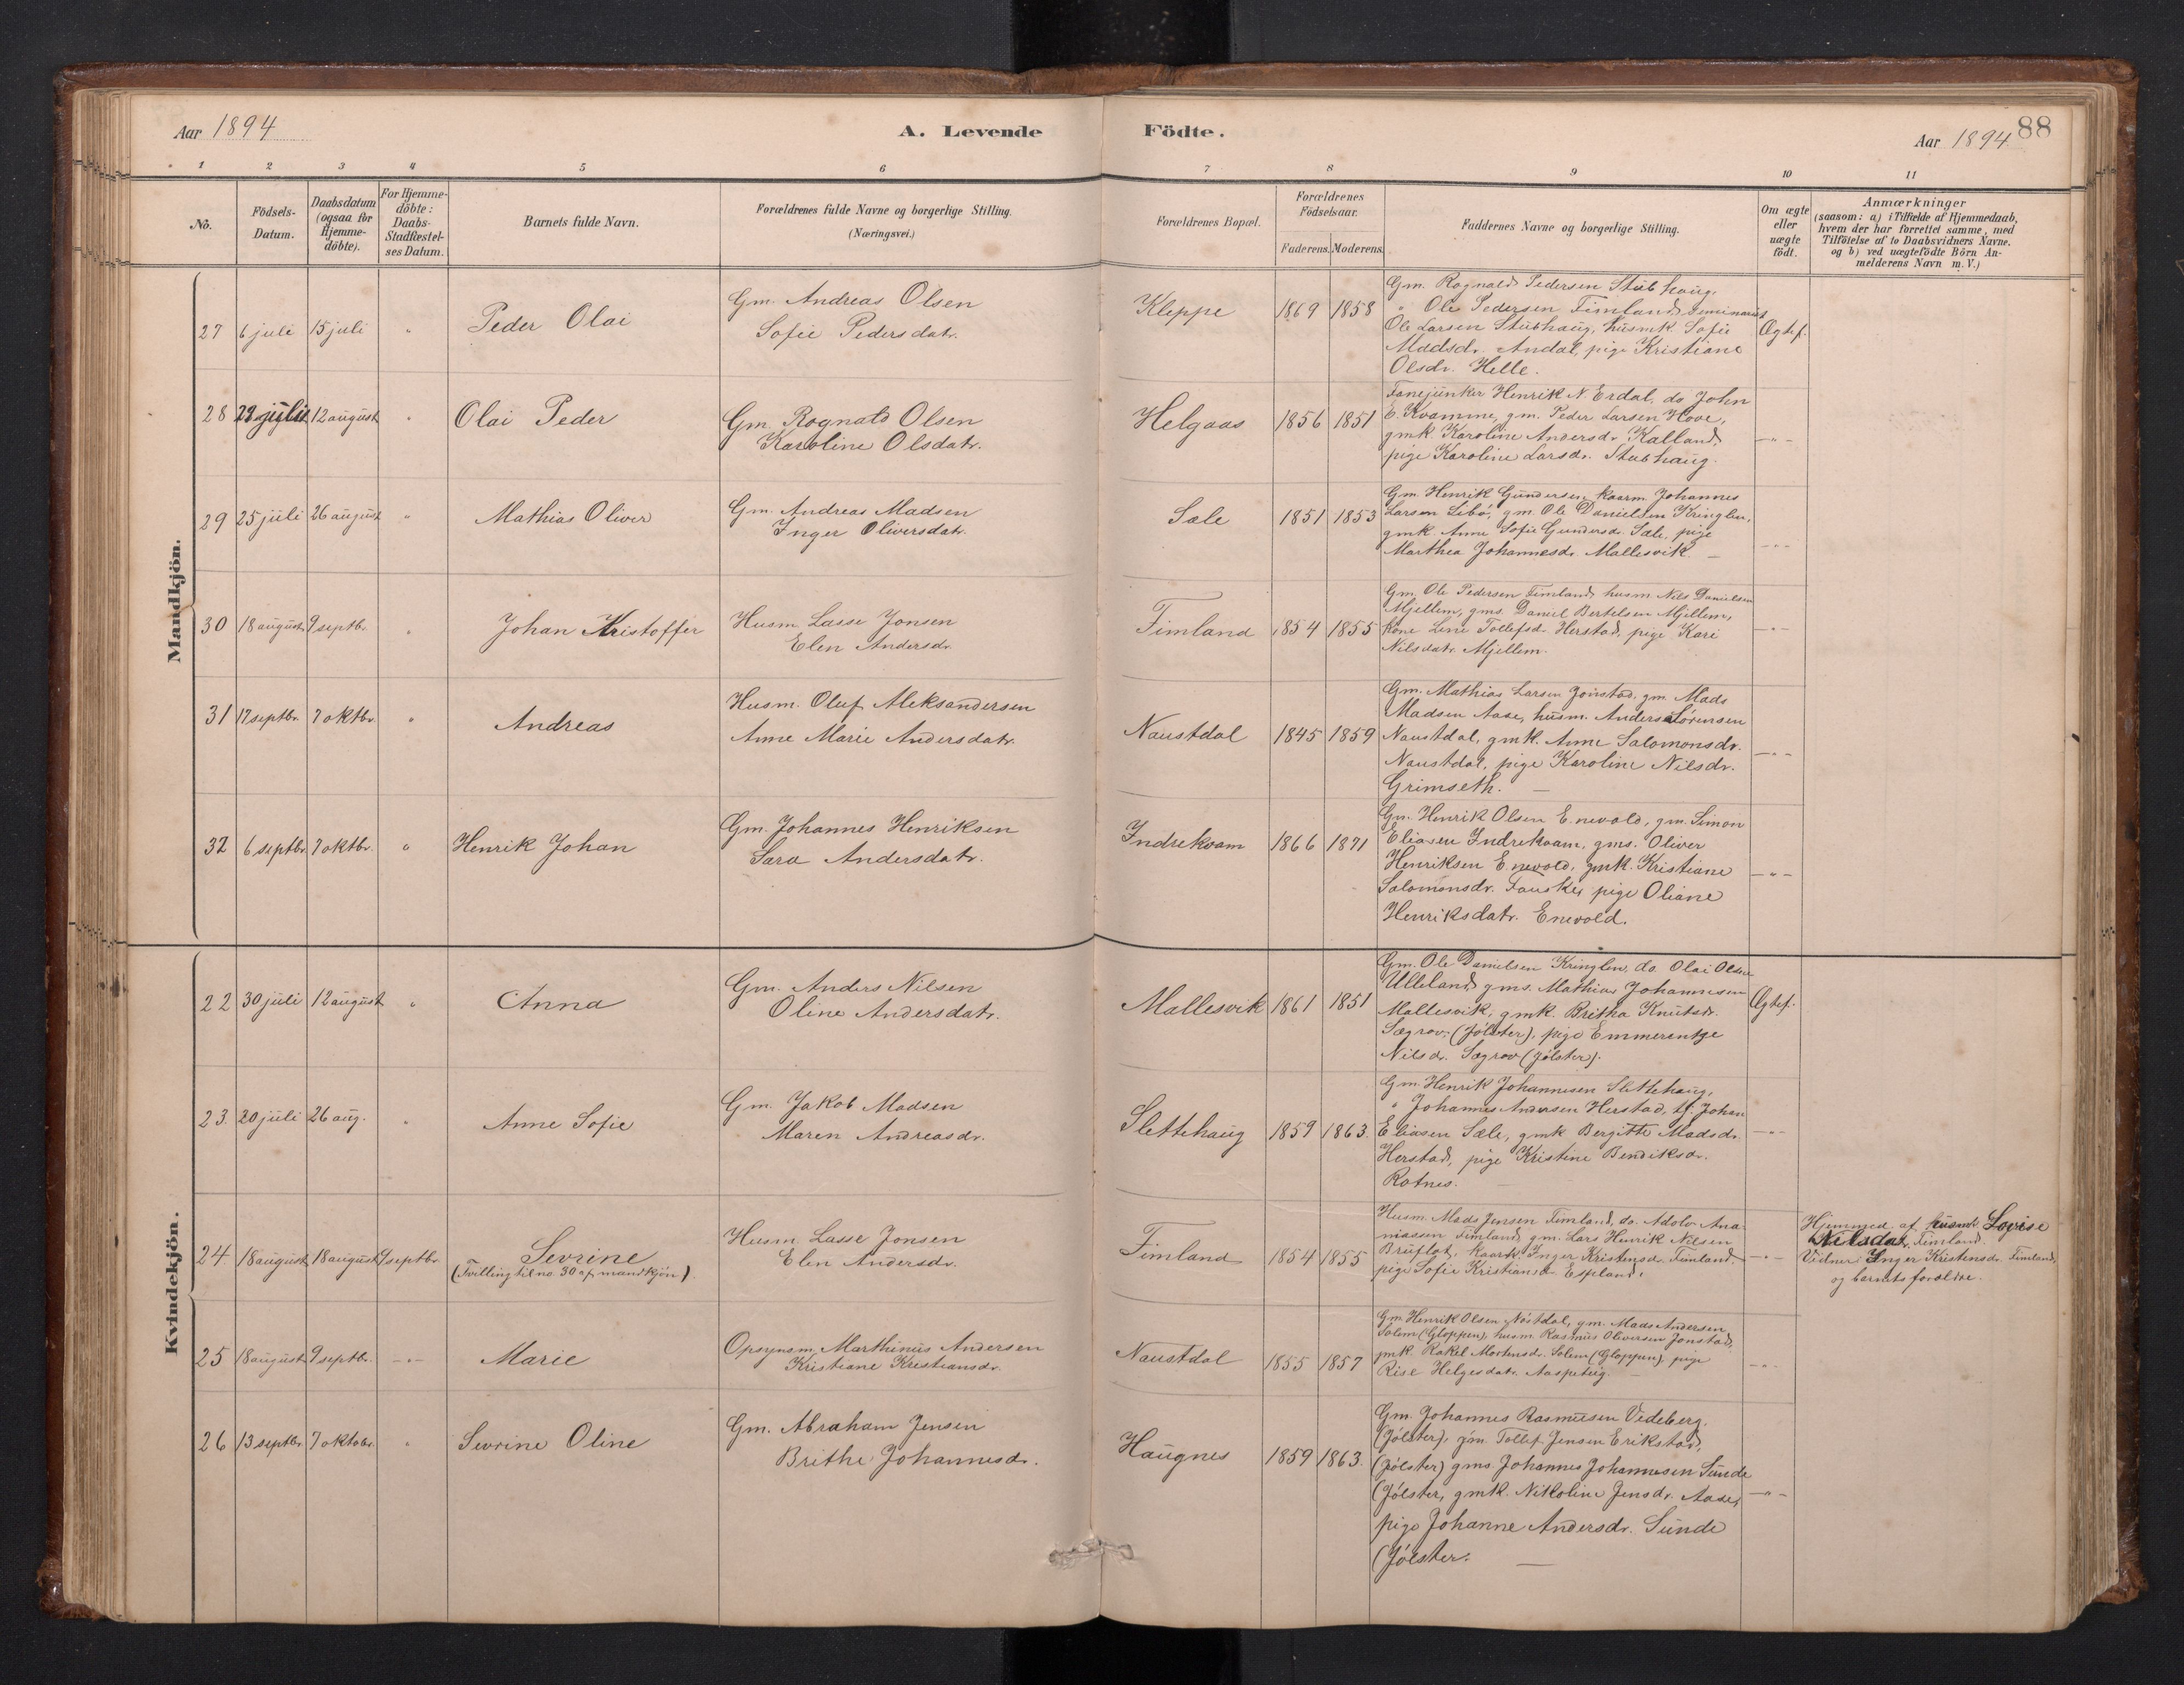 Aar 1894
A. Levende Födte.
Aar 1894
88
1 2 3 4 5 6 7 8 9 10 11
No.
Födsels-
Datum.
Daabsdatum
(ogsaa for
Hjemme-
döbte).
For Hjemme-
döbte:
Daabs-
Stadfæstel-
ses Datum.
Barnets fulde Navn.
Forældrenes fulde Navne og borgerlige Stilling.
(Næringsvei.)
Forældrenes Bopæl.
Forældrenes
Födselsaar.
Faderens. Moderens.
Faddernes Navne og borgerlige Stilling.
Om ægte
eller
uægte
födt.
Anmærkninger
(saasom: a) i Tilfælde af Hjemmedaab,
hvem der har forrettet samme, med
Tilföielse af to Daabsvidners Navne.
og b) ved uægtefödte Börn An-
melderens Navn m. V.)
Mandkjön.
27 6 juli 15 juli " Peder Olai
Gm. Andreas Olsen
Sofie Pedersdatr.
Kleppe 1869 1858
Gm. Rognald Pedersen Stubhaug,
" Ole Pedersen Timland, seminarist
Ole Larsen Stubhaug, husmk. Sofie
Madsdr. Andal, pige Kristiane
Olsdr. Helle.
Ægtef.
28 juli 12 august " Olai Peder
Gm. Rognald Olsen
Karoline Olsdatr.
Helgaas 1856 1851
Fanejunker Henrik N. Erdal, do John
E. Kvamme, gm. Peder Larsen Hove,
gmk. Karoline Andersdr. Kalland,
pige Karoline Larsdr. Stubhaug.
—"—
29 25 juli 26 august " Mathias Oliver
Gm. Andreas Madsen
Inger Oliversdatr.
Sæle 1851 1853
Gm. Henrik Gundersen, kaarm. Johannes
Larsen Libö, gm. Ole Danielsen Kringlen,
gmk. Anne Sofie Gundersdr. Sæle, pige
Marthea Johannesdr. Mallesvik —
—"—
30 18 august 9 septb. " Johan Kristoffer
Husm. Lasse Jonsen
Elen Andersdr.
Timland 1854 1855
Gm. Ole Pedersen Timland, husm. Nils Danielsen
Mjellem, gms. Daniel Bertelsen Mjellem,
kone Lene Tollefsd. Herstad, pige Kari
Nilsdatr. Mjellem.
—"—
31 17 septbr. 7 oktbr. " Andreas
Husm. Oluf Aleksandersen
Anne Marie Andersdatr.
Naustdal 1845 1859
Gm. Mathias Larsen Jonstad, gm. Mads
Madsen Aase, husm. Anders Sörensen
Naustdal, gmk. Anne Salomonsdr.
Naustdal, pige Karoline Nilsdr.
Grimseth. —
—"—
32 6 septbr. 7 oktbr. " Henrik Johan
Gm. Johannes Henriksen
Sara Andersdatr.
Indrekvam 1866 1871
Gm. Henrik Olsen Enevold, gm. Simon
Eliasen Indrekvam, gms. Oliver
Henriksen Enevold, gmk. Kristiane
Salomonsdr. Fauske, pige Oliane
Henriksdatr. Enevold.
—"—
Kvindekjön.
22 30 juli 12 august " Anna
Gm. Anders Nilsen
Oline Andersdatr.
Mallesvik 1861 1851
Gm. Ole Danielsen Kringlen, do. Olai Olsen
Ulleland, gms. Mathias Johannesen
Mallesvik, gmk. Britha Knutsdr.
Sægrov, (Jölster), pige Emmerentze
Nilsdr. Sægrov (Jölster).
Ægtef.
23. 20 juli 26 aug. " Anne Sofie
Gm. Jakob Madsen
Maren Andreasdr.
Slettehaug 1859 1863.
Gm. Henrik Johannesen Slettehaug,
" Johannes Andersen Herstad, tj. Johan
Eliasen Sæle, gmk Bergitte Madsdr.
Herstad, pige Kristine Bendiksdr.
Rotnes.
—"—
24 18 august 18 august 9 septbr. Sevrine
(Tvilling til no. 30 af mandkjön).
Husm. Lasse Jonsen
Elen Andersdr.
Timland 1854 1855
Husm. Mads Jensen Timland, do. Adolv Ana-
niassen Timland, gm. Lars Henrik Nilsen
Bruflot, kaark. Inger Kristensdr. Timland,
pige Sofie Kristiansdr. Espland.
—"—
Hjemmed. af husmk. Lovise
Nilsdatr. Timland.
Vidner: Inger Kristensdr. Timland,
og barnets forældre.
25 18 august 9 septbr. —"— Marie
Opsynsm. Marthinus Andersen
Kristiane Kristiansdr.
Naustdal 1855 1857
Gm. Henrik Olsen Nöstdal, gm. Mads Andersen
Solem (Gloppen), husm. Rasmus Oliversen Jonstad,
gmk Rakel Mortensdr. Solem (Gloppen), pige
Rise Helgesdatr. —
—"—
26 13 septbr. 7 oktobr. " Sevrine Oline
Gm. Abraham Jensen
Brithe Johannesdr.
Haugnes 1859 1863.
Gm. Johannes Rasmusen Vedeberg.
(Jölster), gm. Tollef Jensen Erikstad,
(Jölster) gms. Johannes Johannesen Sunde
(Jölster, gmk. Nikoline Jensdr. Aase,
pige Johanne Andersdr. Sunde
(Jölster. —
—"—